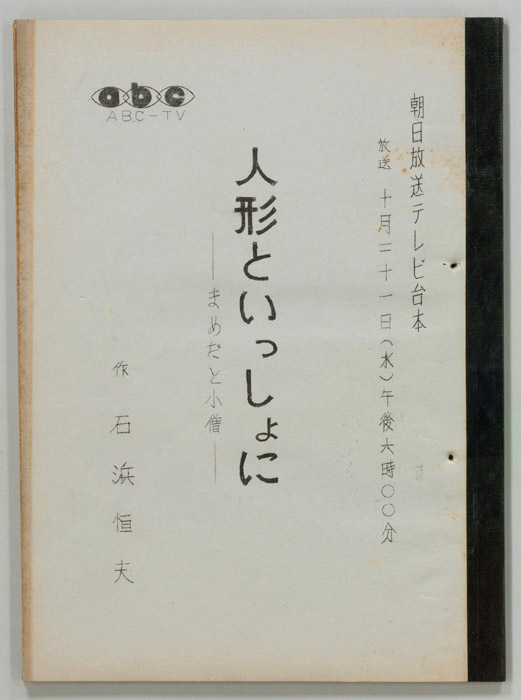 朝日放送テレビ台本
放送 十月二十一日(水)午後六時〇〇分
人形といっしょに
——まめだと小僧——
作 石浜恒夫
abc
ABC-TV